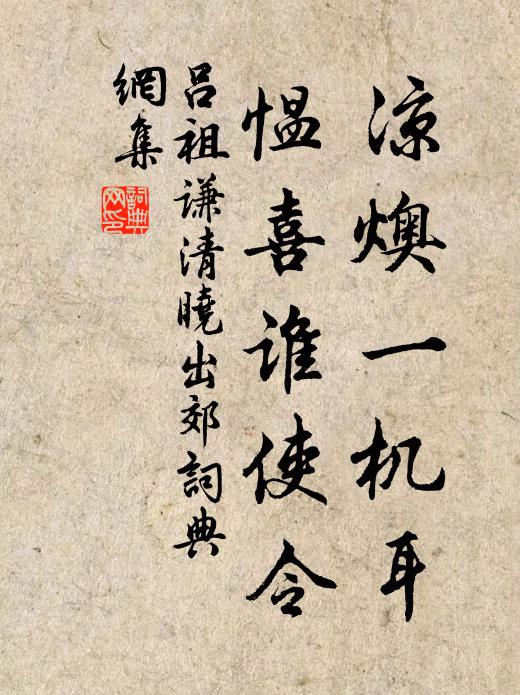 凉燠一机耳
愠喜谁使令
吕祖谦清曉出郊詞典
網集
詞典
网印